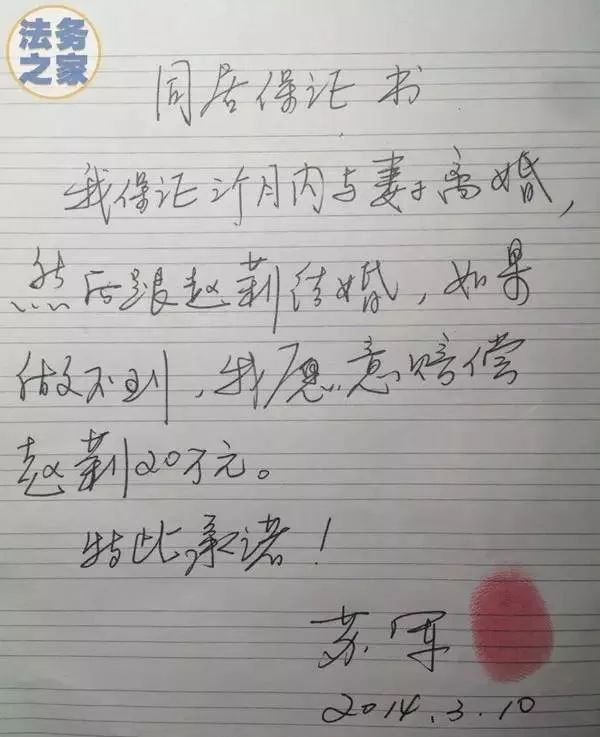 法务
之家
同居保证书
我保证个月内与妻子离婚,
然后跟赵莉结婚,如果
做不到,我愿意赔偿
赵莉20万元。
特此承诺!
苏军
2014.3.10